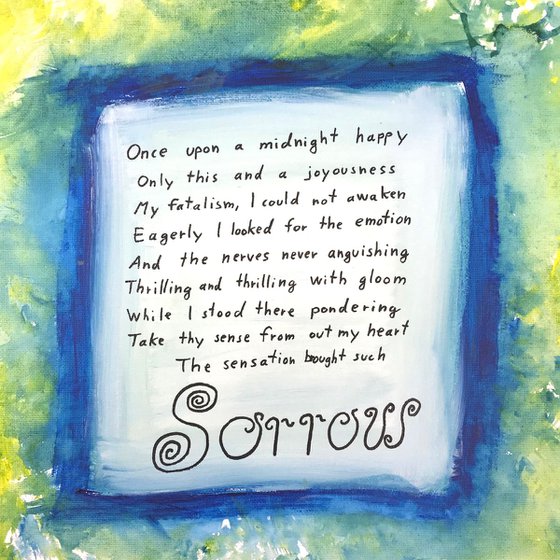 Once upon a midnight happy
Only this and a joyousness
My fatalism, I could not awaken
Eagerly I looked for the emotion
And the nerves never anguishing
Thrilling and thrilling with gloom
While I stood there pondering
Take thy sense from out my heart
The sensation bought such
Sorrow